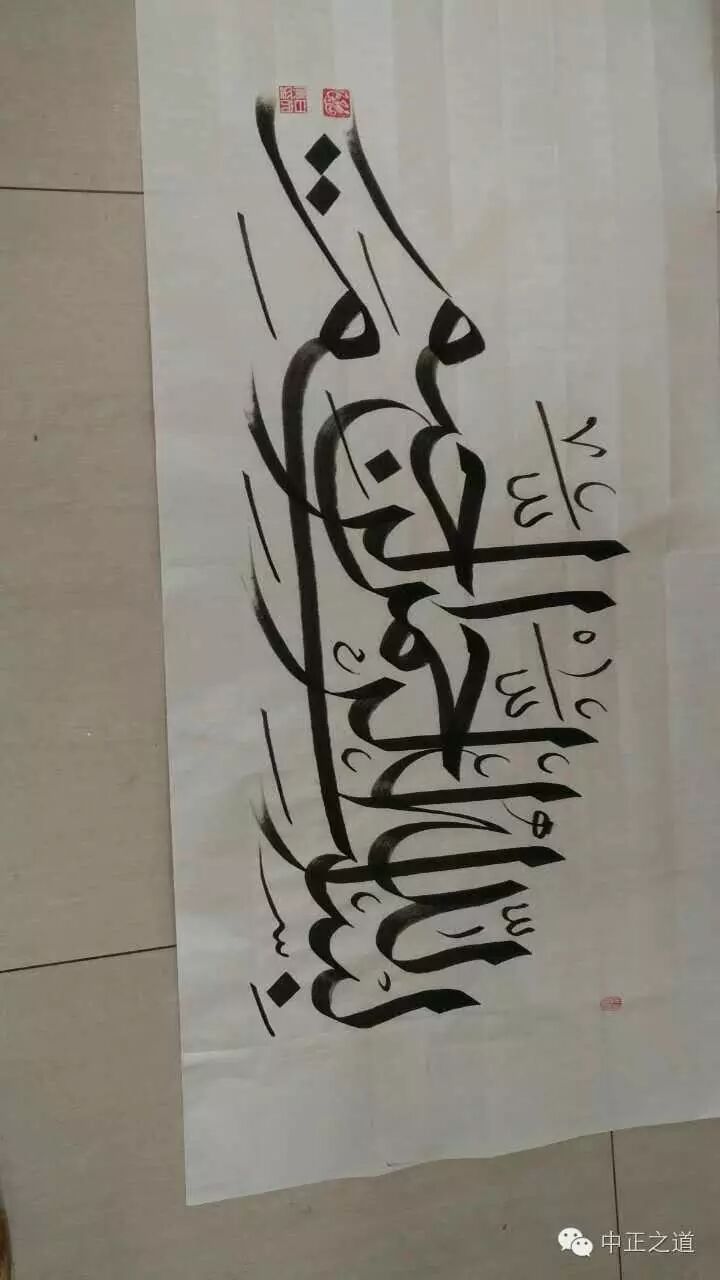 بِسْمِ اللّٰهِ الرَّحْمٰنِ الرَّحِيْمِ
中正之道